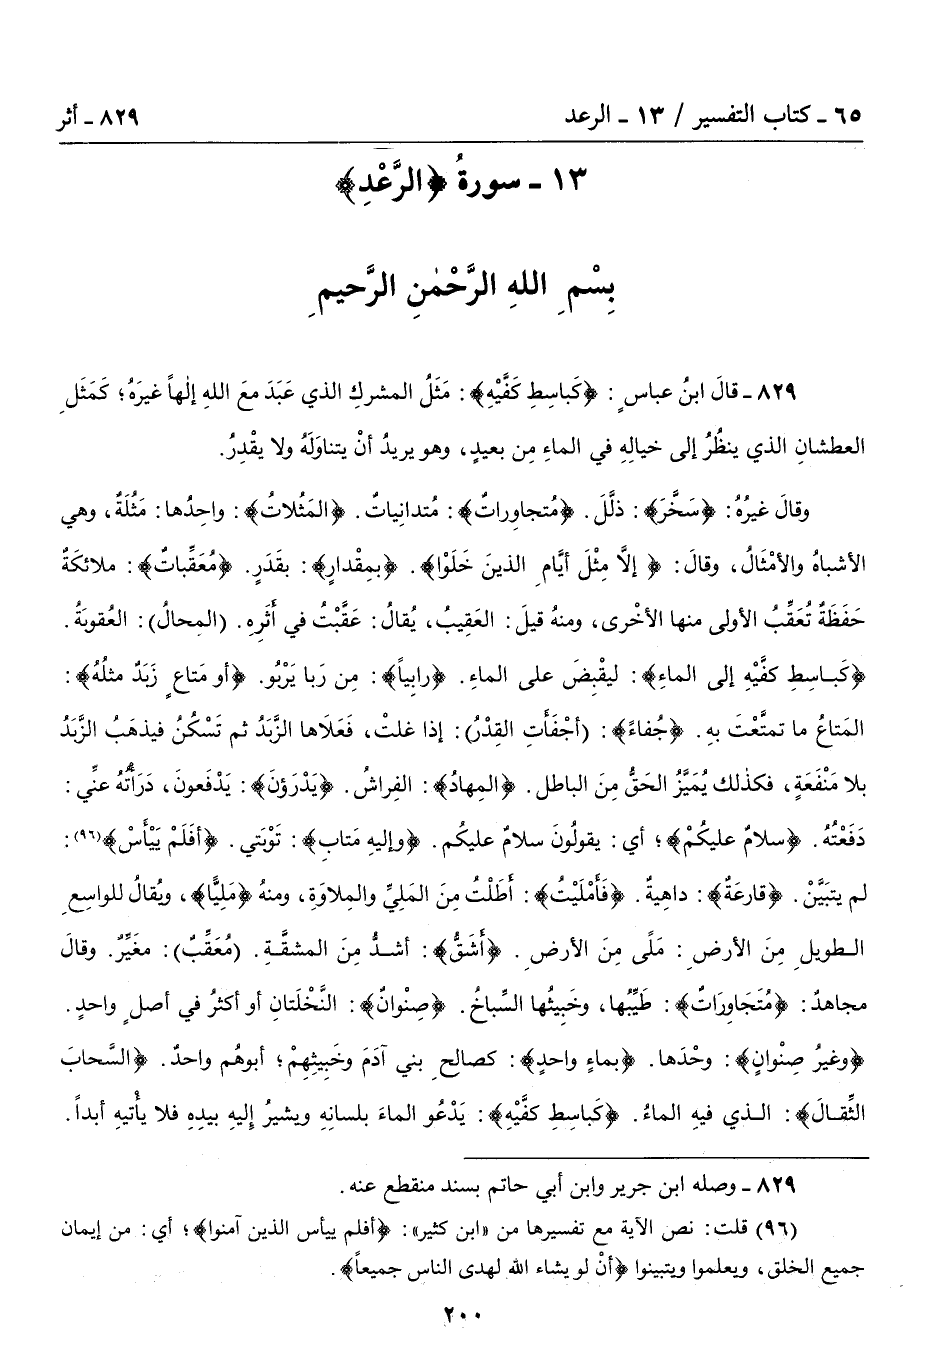 ٦٥ ـ كتاب التفسير / ١٣ ـ الرعد
٨٢٩ ـ أثر
١٣ ـ سورةُ ﴿الرَّعْدِ﴾
بِسْمِ اللهِ الرَّحْمٰنِ الرَّحيمِ
٨٢٩ ـ قالَ ابنُ عباسٍ: ﴿كَباسِطِ كَفَّيْهِ﴾: مَثَلُ المشركِ الذي عَبَدَ معَ اللهِ إلٰهاً غيرَهُ؛ كَمَثَلِ
العطشانِ الذي ينظُرُ إلى خيالِهِ في الماءِ مِن بعيدٍ، وهو يريدُ أنْ يتناوَلَهُ ولا يقْدِرُ.
وقالَ غيرُهُ: ﴿سَخَّرَ﴾: ذلَّلَ. ﴿مُتجاوِراتٌ﴾: مُتدانِياتٌ. ﴿المَثُلاتُ﴾: واحِدُها: مَثُلَةٌ، وهي
الأشباهُ والأمْثالُ، وقالَ: ﴿إلَّا مِثْلَ أيَّامِ الذينَ خَلَوْا﴾. ﴿بمِقْدارٍ﴾: بقَدَرٍ. ﴿مُعَقِّباتٌ﴾: ملائكَةٌ
حَفَظَةٌ تُعَقِّبُ الأولى منها الأخْرى، ومنهُ قيلَ: العَقِيبُ، يُقالُ: عَقَّبْتُ في أَثَرِهِ. (المِحالُ): العُقوبَةُ.
﴿كَباسِطِ كفَّيْهِ إلى الماءِ﴾: ليقْبِضَ على الماءِ. ﴿رابِياً﴾: مِن رَبا يَرْبُو. ﴿أو مَتاعٍ زَبَدٌ مثلُهُ﴾:
المَتاعُ ما تمتَّعْتَ بهِ. ﴿جُفاءً﴾: (أجْفَأَتِ القِدْرُ): إذا غلتْ، فَعَلاها الزَّبَدُ ثم تَسْكُنُ فيذهَبُ الزَّبَدُ
بلا مَنْفَعَةٍ، فكذٰلك يُمَيَّزُ الحَقُّ مِنَ الباطلِ. ﴿المِهادُ﴾: الفِراشُ. ﴿يَدْرَؤنَ﴾: يَدْفَعونَ، دَرَأْتُهُ عنِّي:
دَفَعْتُهُ. ﴿سلامٌ عليكُمْ﴾؛ أي: يقولُونَ سلامٌ عليكُم. ﴿وإليهِ مَتابِ﴾: تَوْبَتي. ﴿أفَلَمْ يَيْأَسْ﴾(٩٦):
لم يتبَيَّنْ. ﴿قارِعَةٌ﴾: داهِيةٌ. ﴿فَأَمْلَيْتُ﴾: أَطَلْتُ مِنَ المَليِّ والمِلاوَةِ، ومنهُ ﴿مَلِيًّا﴾، ويُقالُ للواسِعِ
الطويلِ مِنَ الأرضِ: مَلًى مِنَ الأرضِ. ﴿أَشَقُّ﴾: أشدُّ مِنَ المشقَّةِ. (مُعَقِّبٌ): مغَيِّرٌ. وقالَ
مجاهدٌ: ﴿مُتَجَاوِرَاتٌ﴾: طَيِّبُها، وخَبِيثُها السِّباخُ. ﴿صِنْوانٌ﴾: النَّخْلَتانِ أو أكثرُ في أصلٍ واحدٍ.
﴿وغيرُ صِنْوانٍ﴾: وحْدَها. ﴿بماءٍ واحدٍ﴾: كصالحِ بني آدَمَ وخَبِيثِهِمْ؛ أبوهُم واحدٌ. ﴿السَّحابَ
الثِّقالَ﴾: الذي فيهِ الماءُ. ﴿كَباسِطِ كفَّيْهِ﴾: يَدْعُو الماءَ بلسانِهِ ويشيرُ إليهِ بيدِهِ فلا يأتيهِ أبداً.
٨٢٩ ـ وصله ابن جرير وابن أبي حاتم بسند منقطع عنه.
(٩٦) قلت: نص الآية مع تفسيرها من «ابن كثير»: ﴿أفلم ييأس الذين آمنوا﴾؛ أي: من إيمان
جميع الخلق، ويعلموا ويتبينوا ﴿أنْ لو يشاء الله لهدى الناس جميعاً﴾.
٢٠٠